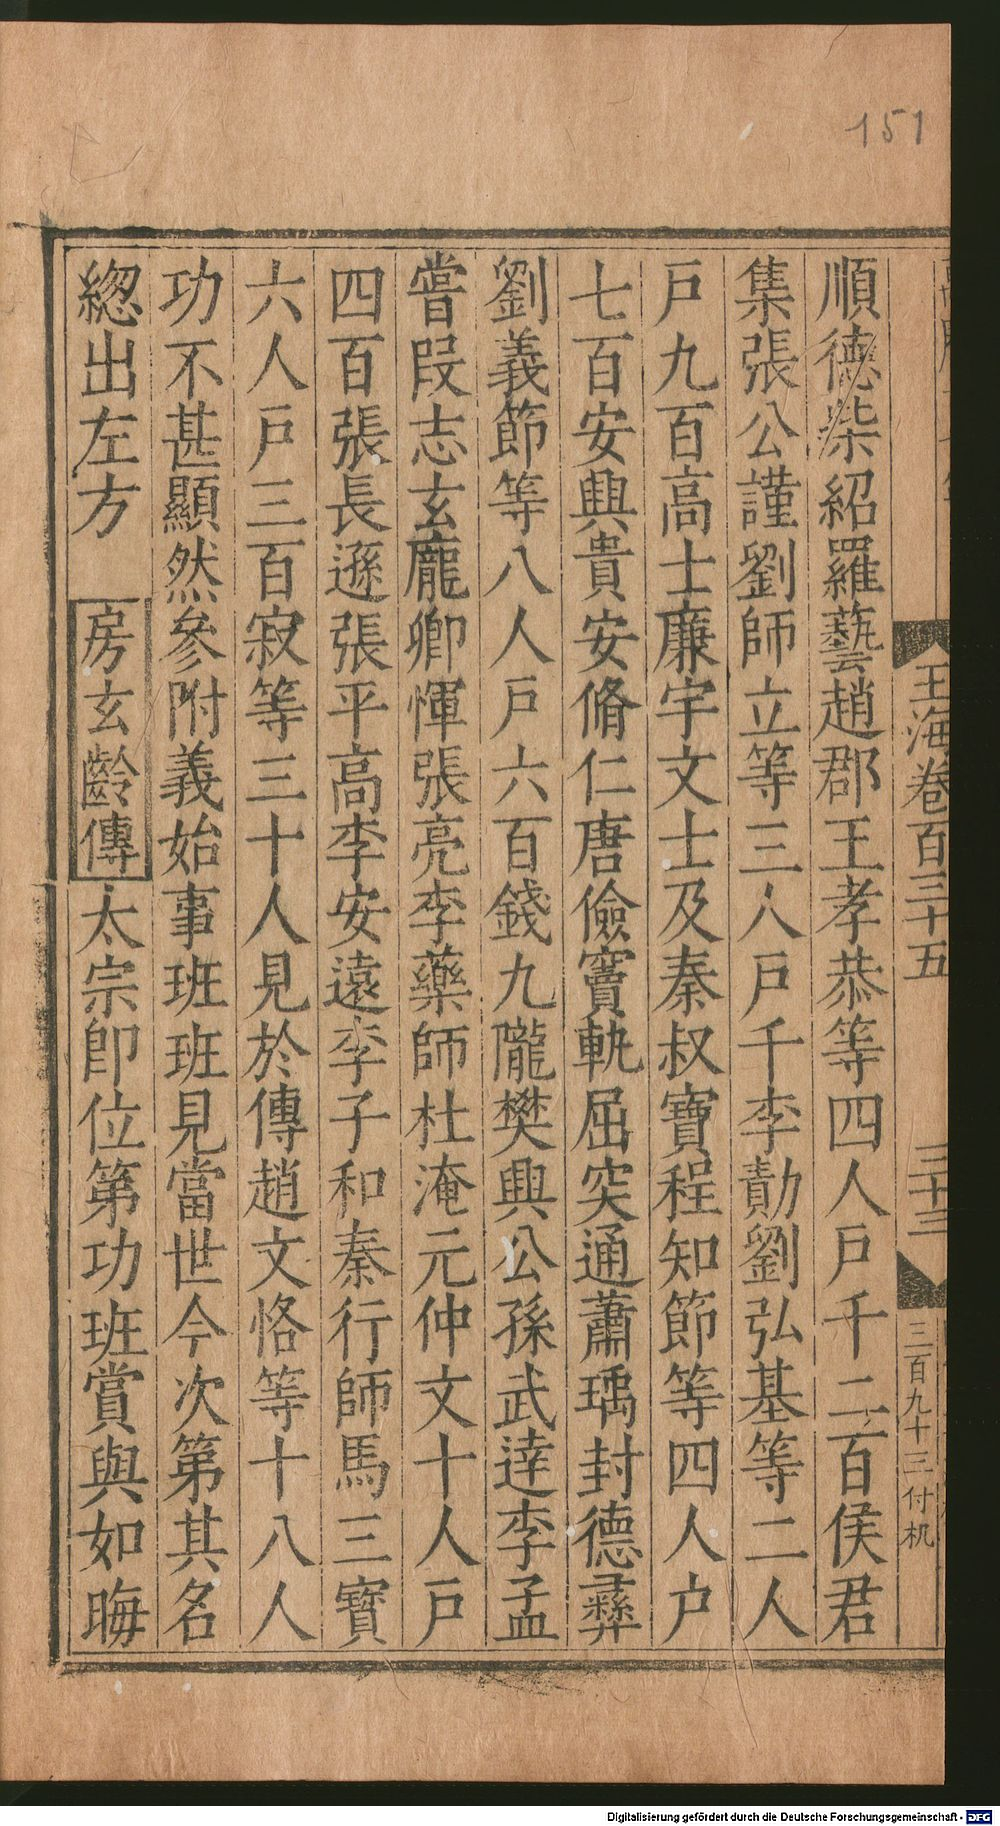 151
玉海卷百三十五
三十三
三百九十三付机
順德柴紹羅藝趙郡王孝恭等四人戸千二百侯君
集張公謹劉師立等三人戸千李勣劉弘基等二人
戸九百高士廉宇文士及秦叔寶程知節等四人户
七百安興貴安脩仁唐儉竇軌屈突通蕭瑀封德彝
劉義節等八人戸六百錢九隴樊興公孫武達李孟
嘗段志玄龐卿惲張亮李藥師杜淹元仲文十人戸
四百張長遜張平高李安遠李子和秦行師馬三寶
六人戸三百寂等三十人見於傳趙文恪等十八人
功不甚顯然參附義始事班班見當世今次第其名
緫出左方 房玄齡傳太宗卽位第功班賞與如晦
Digitalisierung gefördert durch die Deutsche Forschungsgemeinschaft - DFG